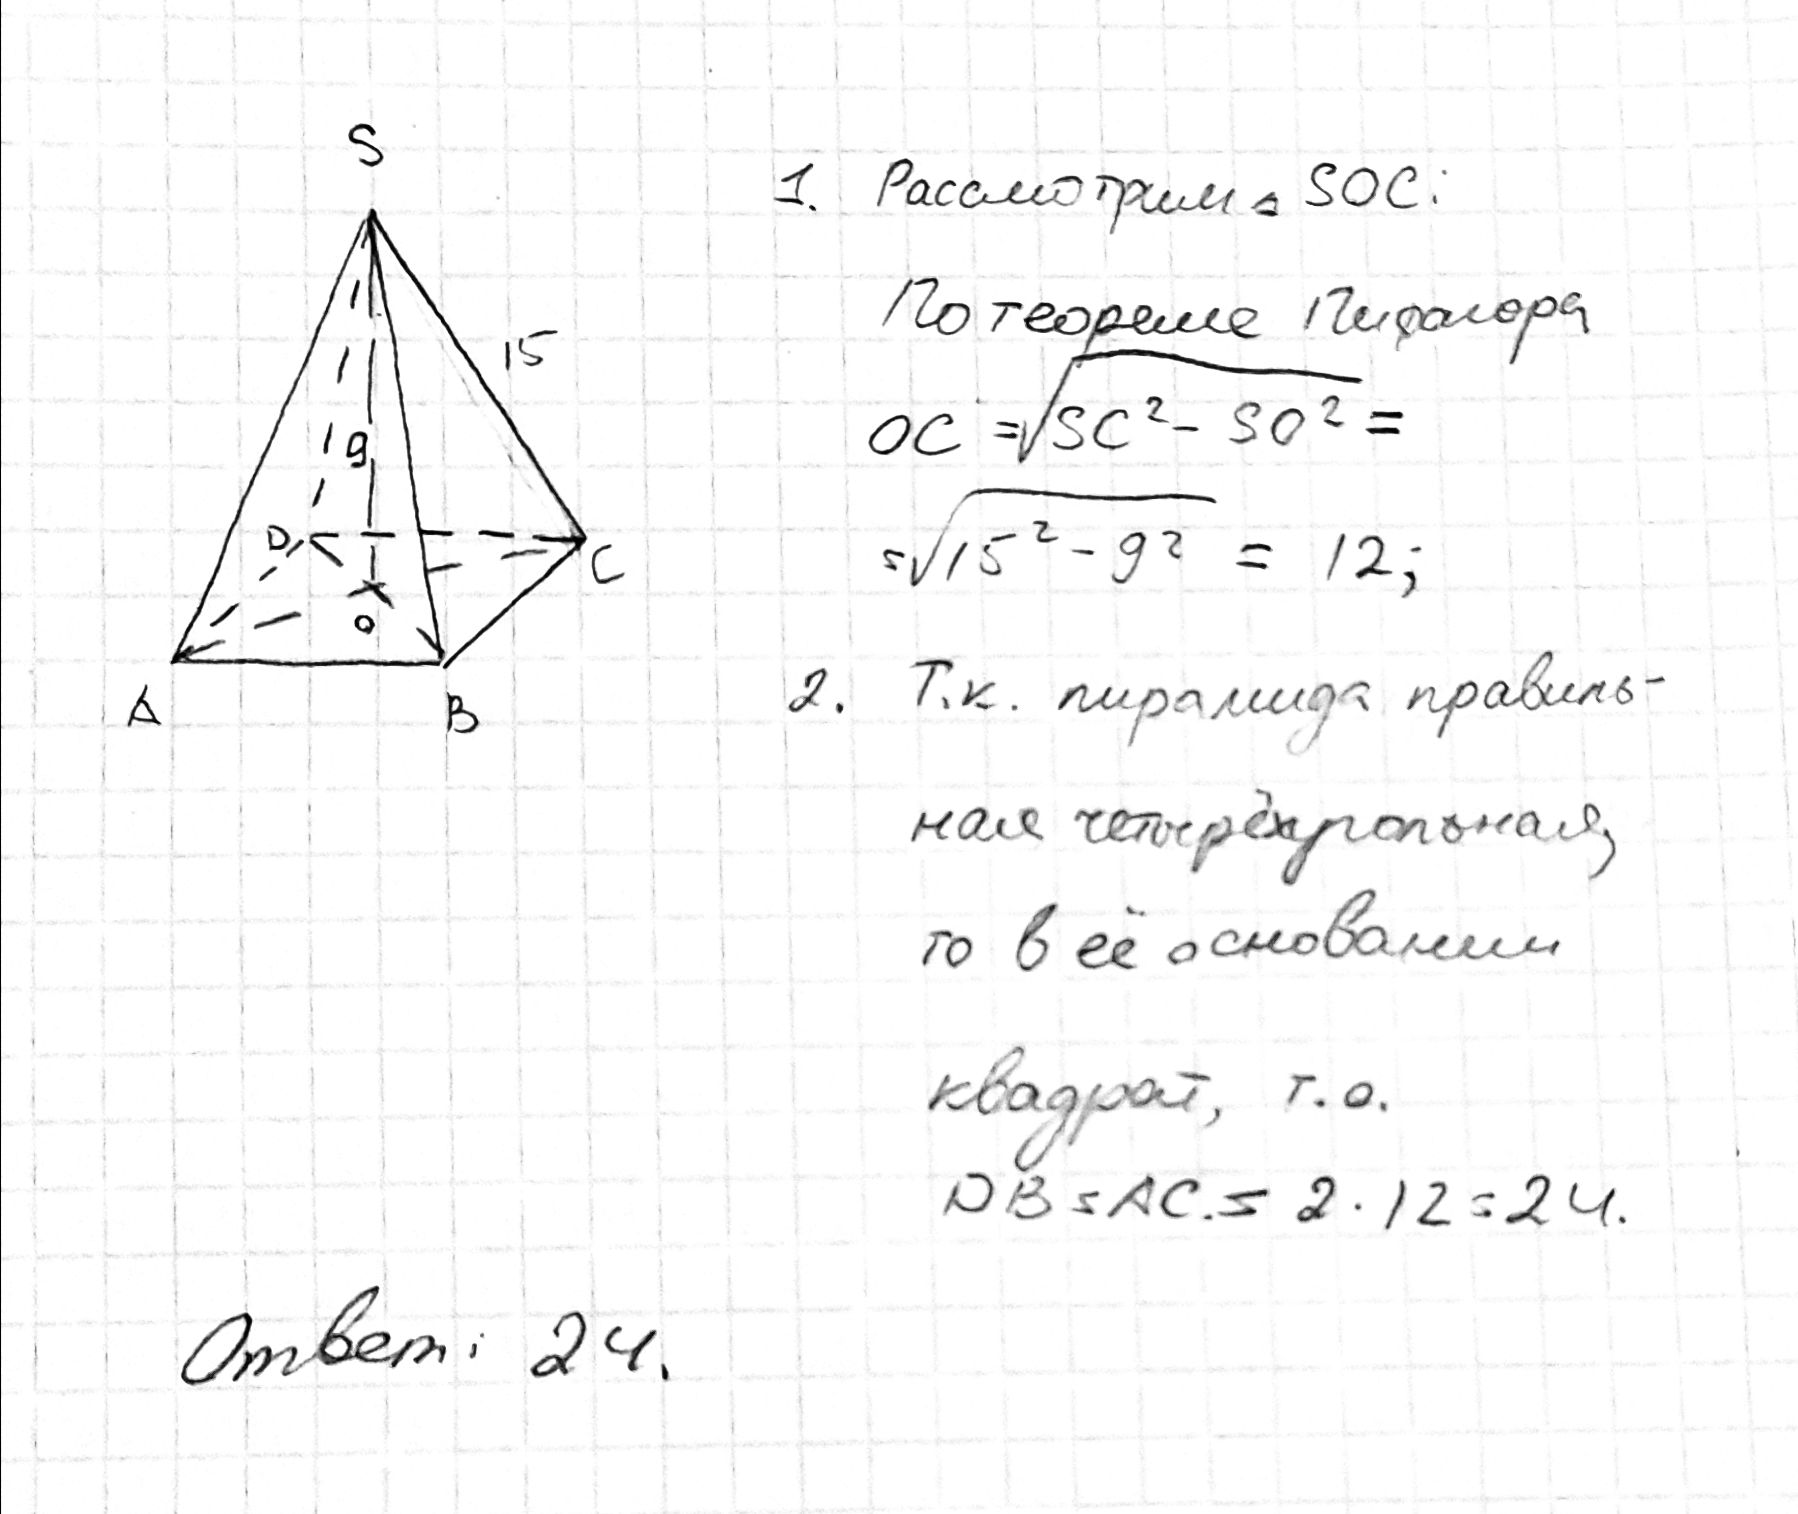 S
15
9
D
C
O
A
B
1. Рассмотрим △ SOC:
По теореме Пифагора
OC = √SC² - SO² =
= √15² - 9² = 12;
2. Т.к. пирамида правиль-
ная четырёхугольная,
то в её основании
квадрат, т.о.
DB = AC. = 2 · 12 = 24.
Ответ: 24.